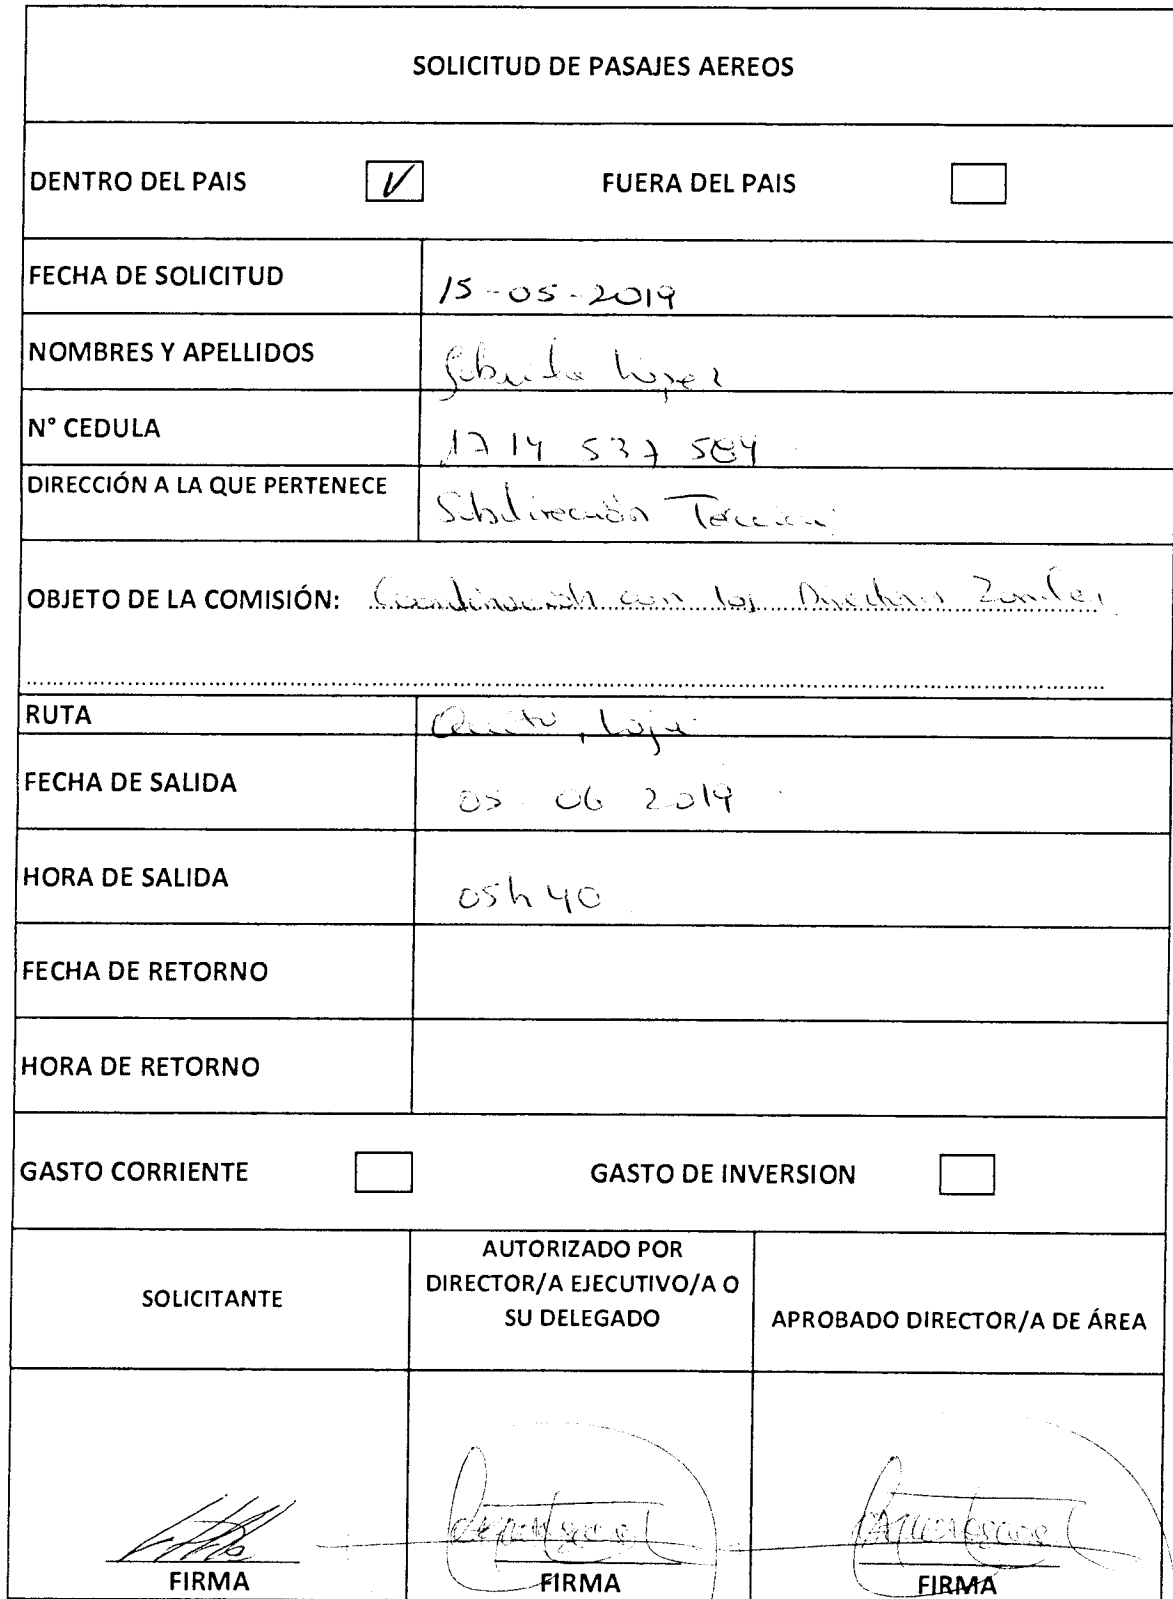 SOLICITUD DE PASAJES AEREOS
DENTRO DEL PAIS V FUERA DEL PAIS
FECHA DE SOLICITUD 15-05-2019
NOMBRES Y APELLIDOS López
N° CEDULA 1714 537 584
DIRECCIÓN A LA QUE PERTENECE Subdirección
OBJETO DE LA COMISIÓN: Coordinación con los Zonales
RUTA Quito, Loja
FECHA DE SALIDA 05 06 2019
HORA DE SALIDA 05h40
FECHA DE RETORNO
HORA DE RETORNO
GASTO CORRIENTE GASTO DE INVERSION
SOLICITANTE
AUTORIZADO POR
DIRECTOR/A EJECUTIVO/A O
SU DELEGADO
APROBADO DIRECTOR/A DE ÁREA
FIRMA FIRMA FIRMA